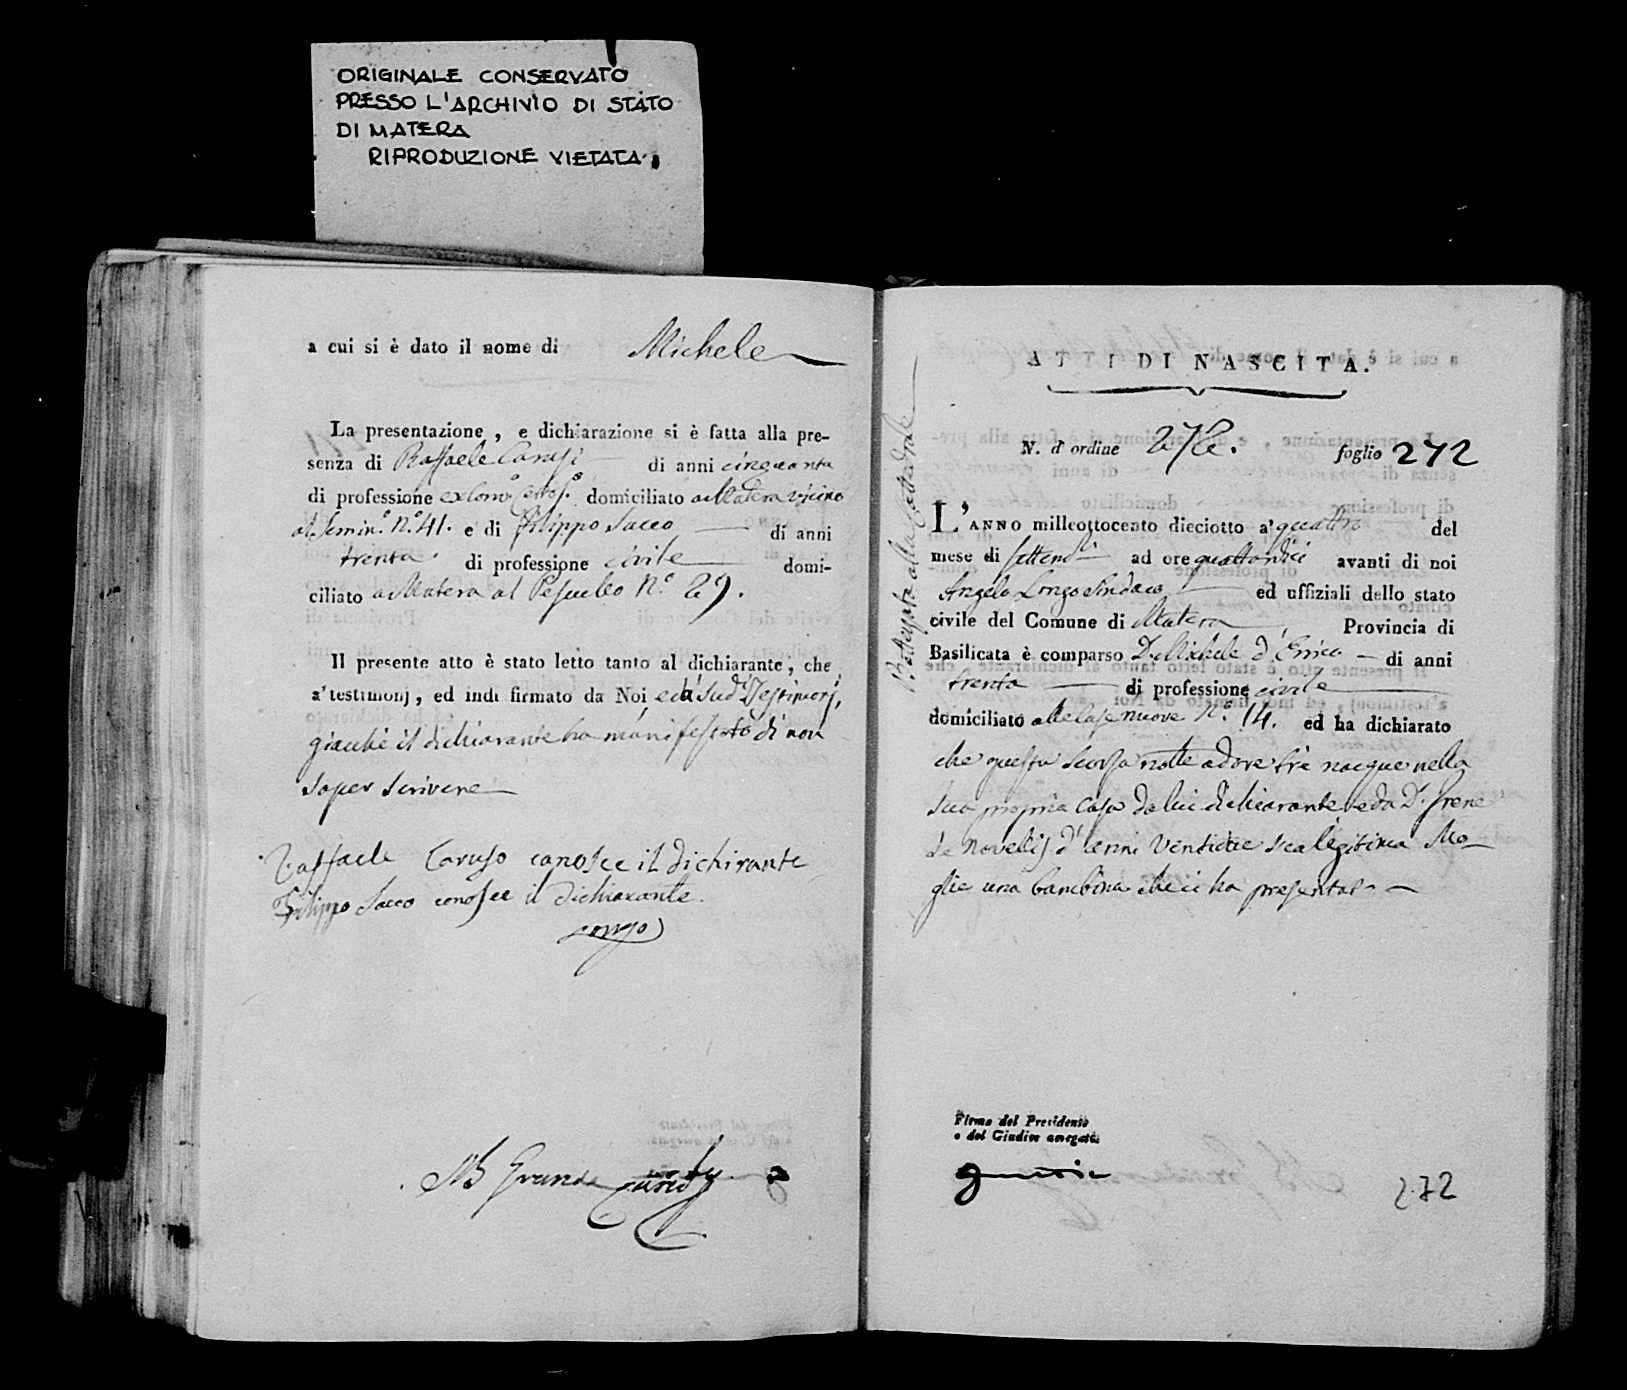 ORIGINALE CONSERVATO
PRESSO L'ARCHIVIO DI STATO
DI MATERA
RIPRODUZIONE VIETATA
a cui si è dato il nome di Michele
La presentazione, e dichiarazione si è fatta alla pre-
senza di Raffaele Carusi di anni cinquanta
di professione domiciliato a Matera vicino
al Semin.° N.° 41. e di Filippo Sacco di anni
trenta di professione civile domi-
ciliato a Matera al N.° 29.
Il presente atto è stato letto tanto al dichiarante, che
a' testimonj, ed indi firmato da Noi, e da' sud.i Testimonj,
giacchè il dichiarante ha manifestato di non
saper scrivere
Raffaele Caruso conosce il dichirante
Filippo Sacco conosce il dichiarante.
Longo
ATTI DI NASCITA.
N. d'ordine 272. foglio 272
L'ANNO milleottocento dieciotto a' quattro del
mese di settemb.e ad ore quattordici avanti di noi
Angelo Longo Sindaco ed uffiziali dello stato
civile del Comune di Matera Provincia di
Basilicata è comparso D. Michele d'Errico di anni
trenta di professione civile
domiciliato alle Case nuove N.° 14. ed ha dichiarato
che questa scorsa notte ad ore tre nacque nella
sua propria casa da lui dichiarante e da D.a Irene
de Novellis d'anni ventidue sua legitima Mo-
glie una bambina che ci ha presentat
Battezzata alla Cattedrale
Firma del Presidente
o del Giudice
272